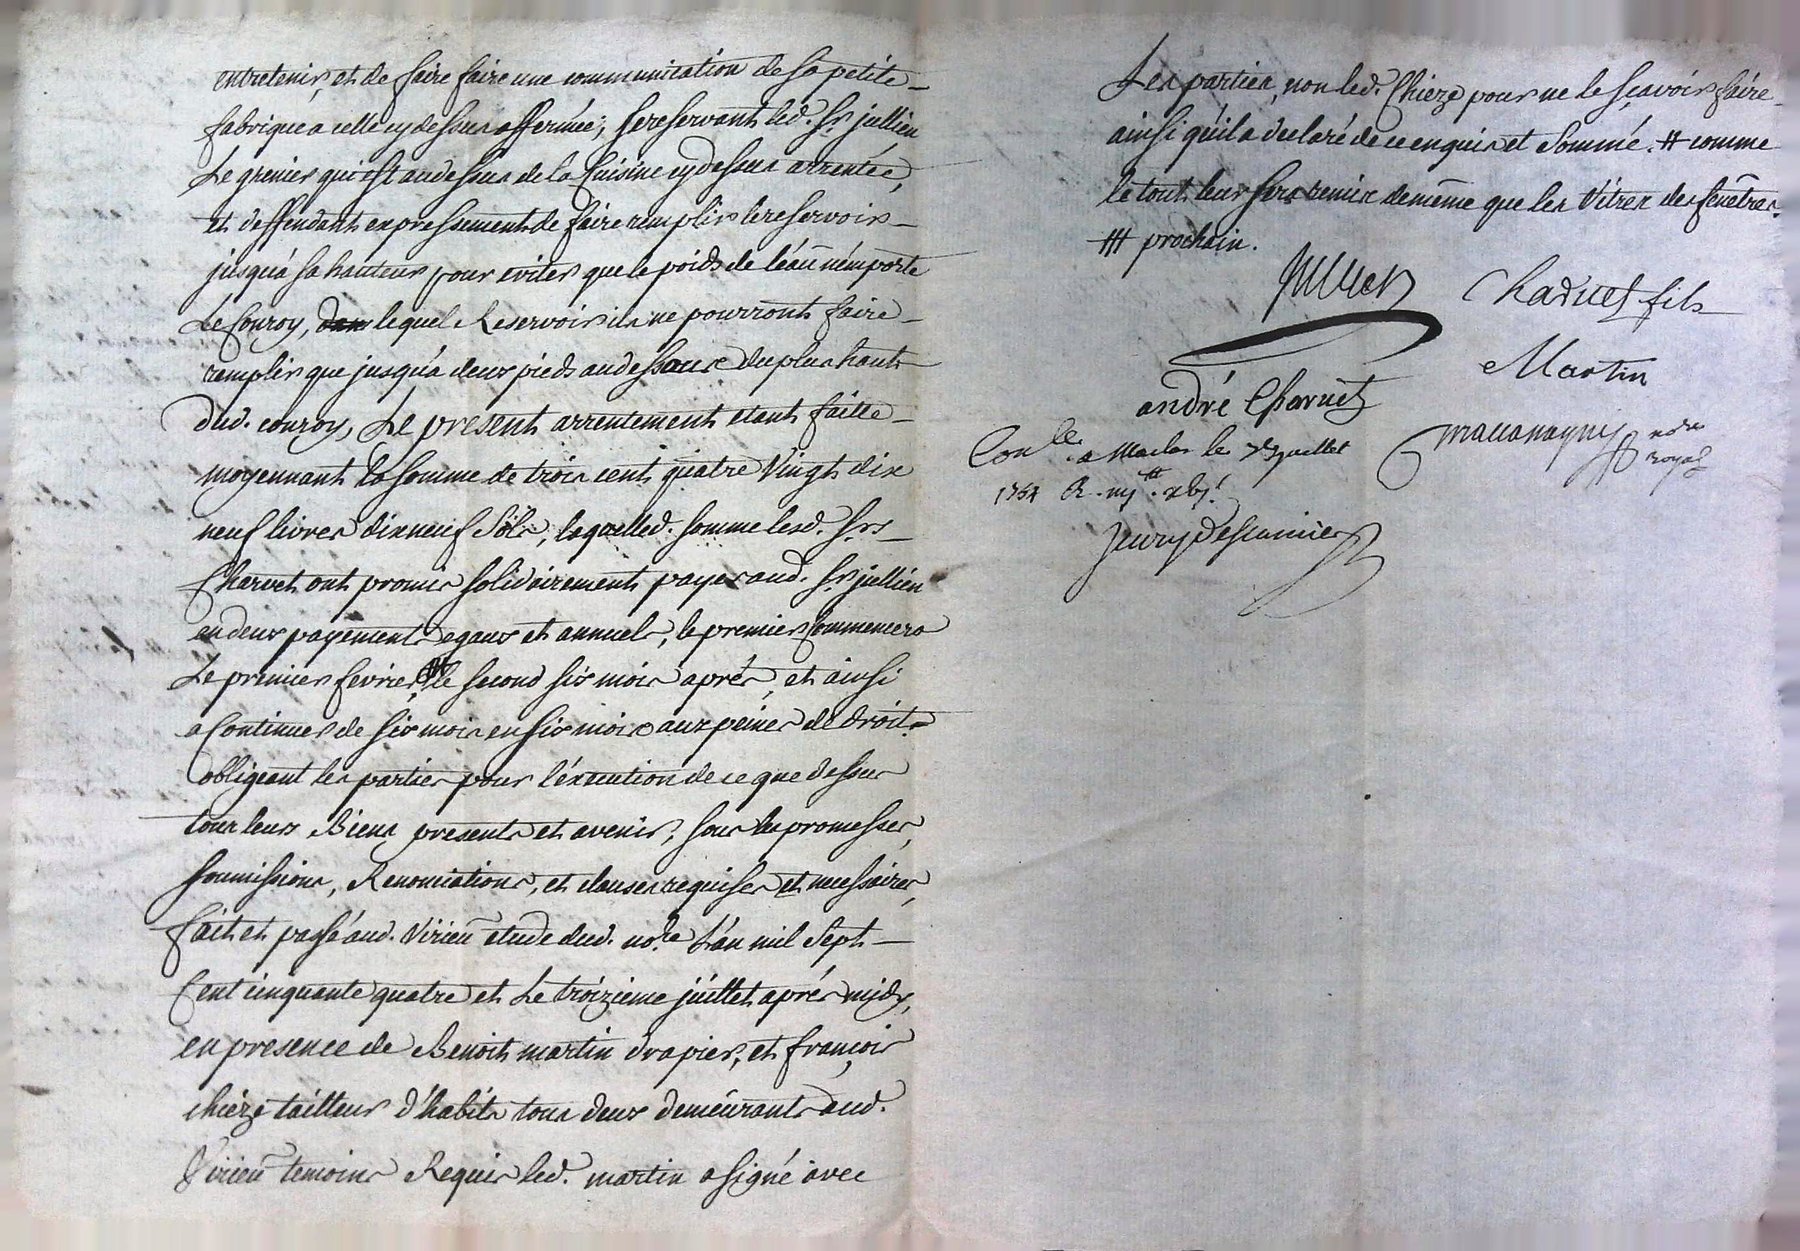 entretenir, et de faire faire une communication de sa petite
fabrique a celle cy dessus affermée; se reservant led. Sr. jullien
Le grenier qui est au dessus de la Cuisine cy dessus arrentée,
et deffendant expressement de faire remplir le reservoir
jusqu'a sa hauteur pour eviter que le poids de l'eau n'emporte
Le Couroy, lequel Reservoir ils ne pourront faire
remplir que jusqu'a deux pieds au dessous du plus haut
dud. couroy, Le present arrentement etant faitte
moyennant la somme de trois cent quatre Vingt dix
neuf livres dix neuf Sols, laquelled. somme lesd. Srs
Charvet ont promis solidairement payer aud. Sr. jullien
en deux payements egaux et annuels, le premier Commencera
Le premier fevrier, # le second six mois aprés, et ainsi
a Continuer de six mois en six mois aux peines de droit.
obligeant les parties pour l'éxecution de ce que dessus
tous leurs Biens, presents et avenir, sous les promesses,
soumissions, Renonciations, et clauses requises et necessaires,
fait et passé aud. Virieu etude dud. nore. L'an mil Sept
Cent cinquante quatre et Le troizieme juillet aprés midy,
en presence de Benoit martin drapier, et françois
chiéze tailleur d'habits tous deux demeurants aud.
Virieu temoins Requis led. martin a signé avec
Les parties, non led. Chieze pour ne le sçavoir faire
ainsi qu'il a declaré de ce enquis et Sommé. # comme
le tout leur sera remis de même que les Vitres des fenêtres.
## prochain.
Jullien Charvet fils
Martin
andré Charvet
Conlle. a Maclas le juillet
1754 R.